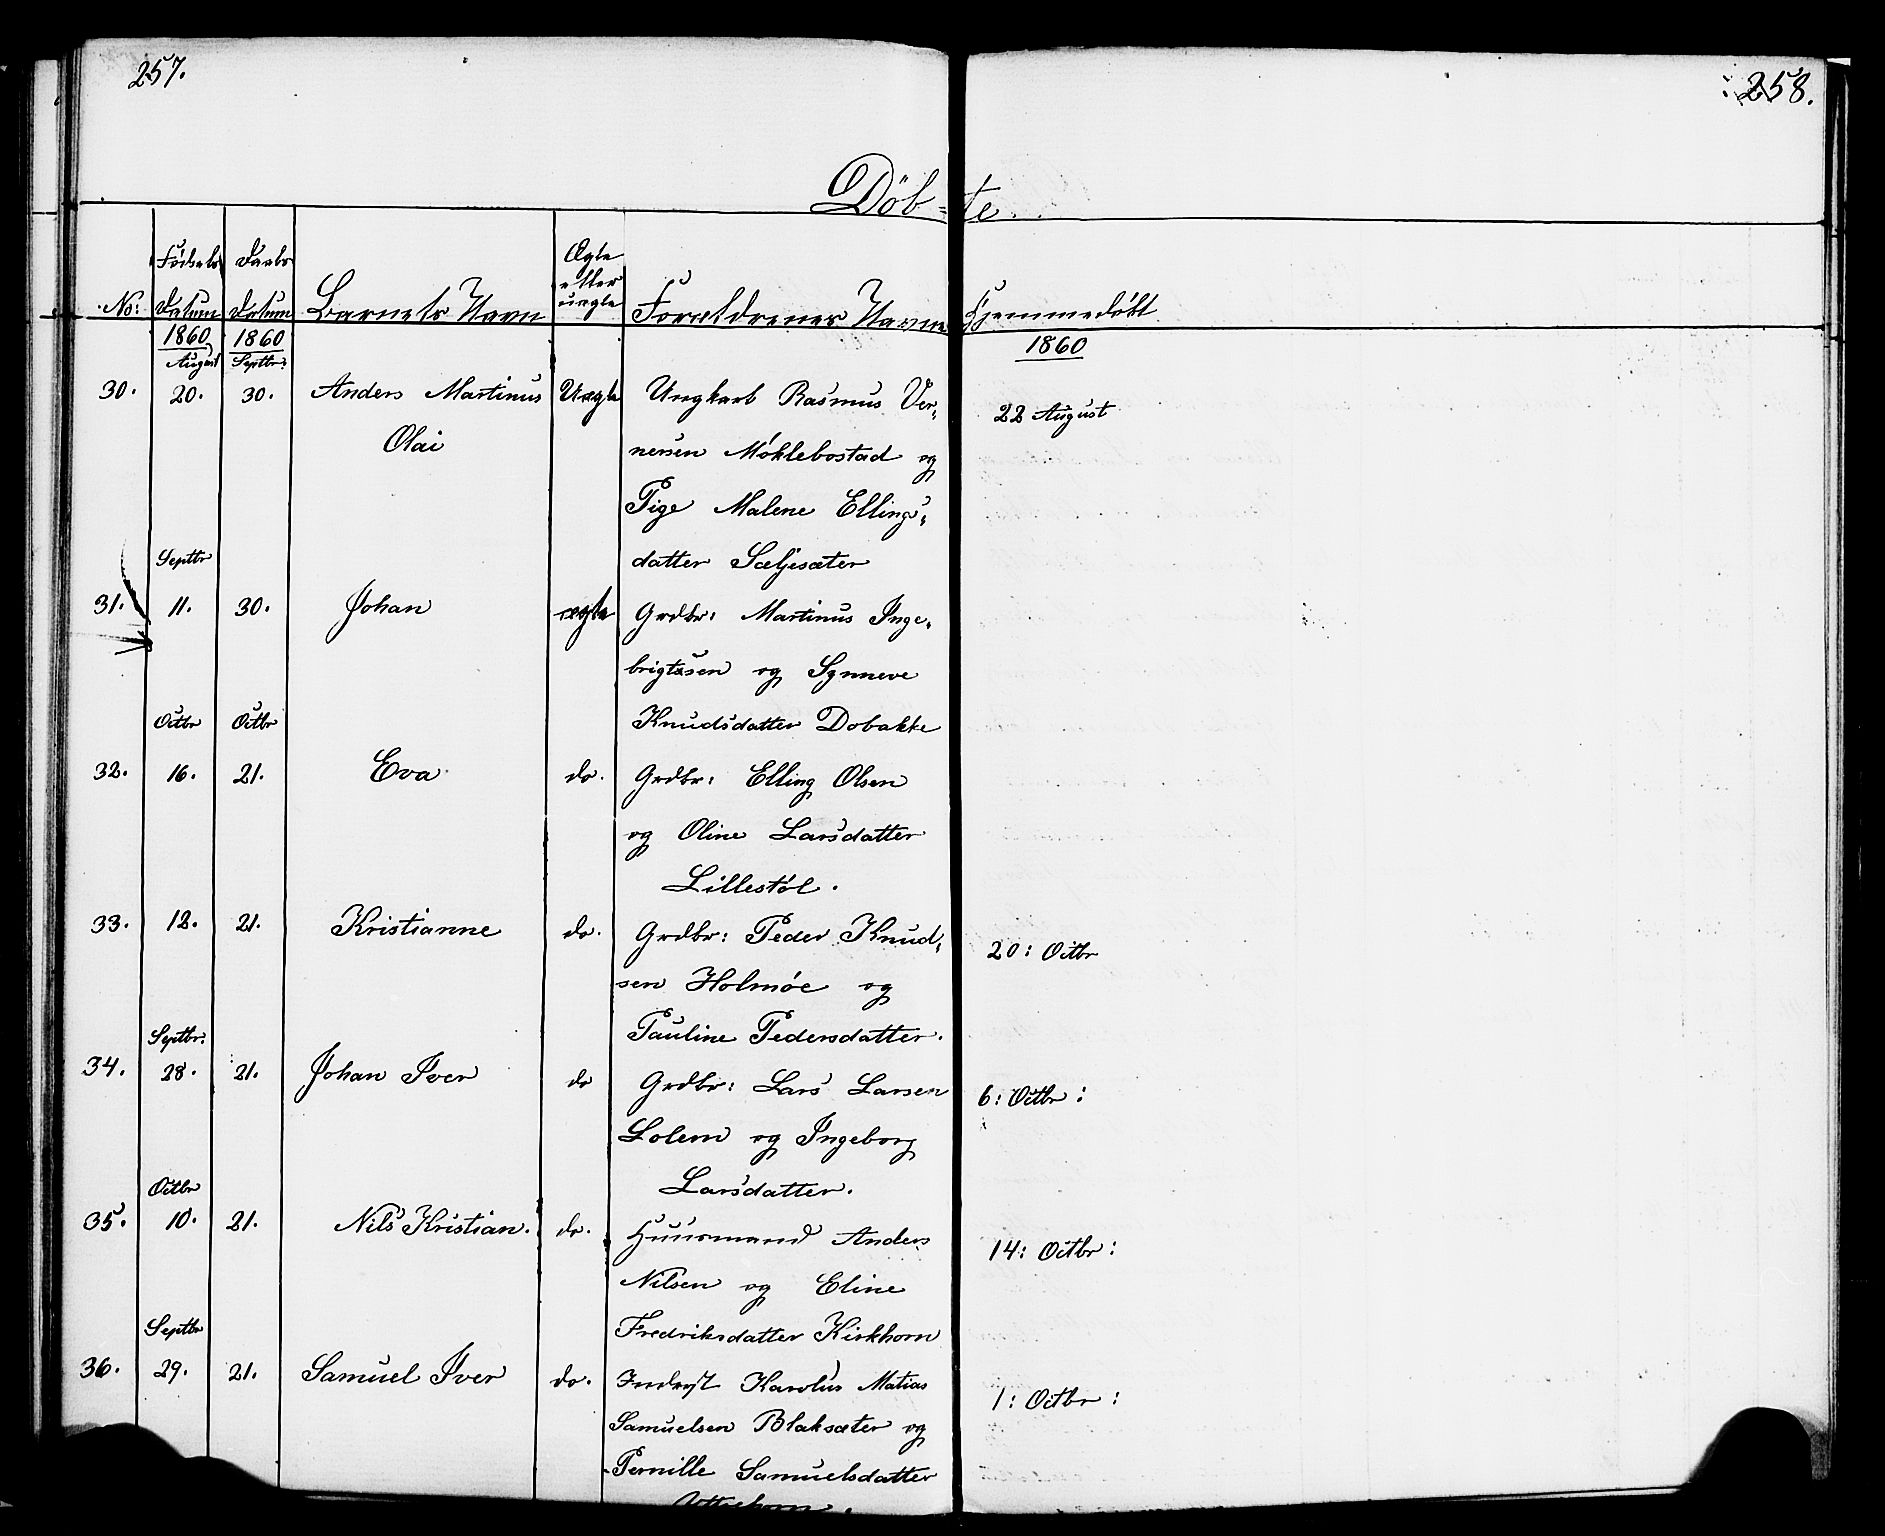 257.
258.
Döb=te
No:
Fødsels Datum
Daabs Datum
Barnets Navn
Ægte eller uægte
Forældrenes Navne
Hjemmedøbt
1860 August
1860 Septbr:
1860
30. 20. 30. Anders Martinus Uægte Ungkarl Rasmus Ver= 22 August
Olai nersen Møklebostad og
Pige Malene Ellings=
Septbr datter Sæljesæter
31. 11. 30. Johan ægte Grdbr: Martinus Inge=
brigtsen og Synneve
Octbr Octbr Knudsdatter Dobakke
32. 16. 21. Eva do. Grdbr: Elling Olsen
og Oline Larsdatter
Lillestøl.
33. 12. 21. Kristianne do. Grdbr: Peder Knud= 20: Octbr
sen Holmøe og
Pauline Pedersdatter.
Septbr:
34. 28. 21. Johan Iver do Grdbr: Lars Larsen 6: Octbr:
Lolem og Ingeborg
Octbr Larsdatter.
35. 10. 21. Nils Kristian. do. Huusmand Anders 14: Octbr:
Nilsen og Eline
Septbr Fredriksdatter Kirkhorn
36. 29. 21. Samuel Iver do. Inderst Karolus Matias 1: Octbr:
Samuelsen Blaksæter og
Pernille Samuelsdatter